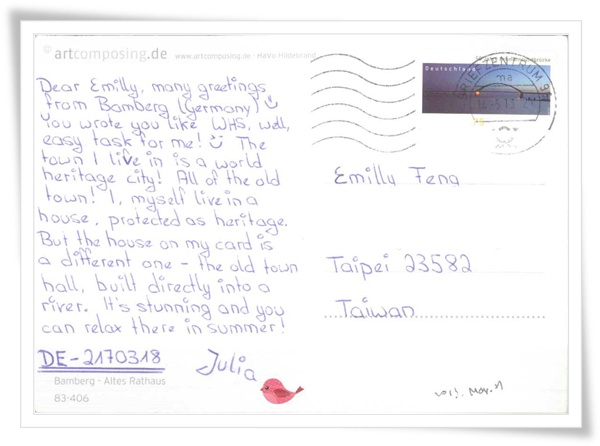 © artcomposing.de www.artcomposing.de - HaVo Hildebrand
Dear Emilly, many greetings
from Bamberg (Germany)
You wrote you like WHS, well,
easy task for me! The
town I live in is a world
heritage city! All of the old
town! I, myself live in a
house, protected as heritage.
But the house on my card is
a different one - the old town
hall, built directly into a
river. It's stunning and you
can relax there in summer!
DE-2170318 Julia
Bamberg - Altes Rathaus
83-406
Deutschland
BRIEFZENTRUM 9
Emilly Feng
Taipei 23582
Taiwan